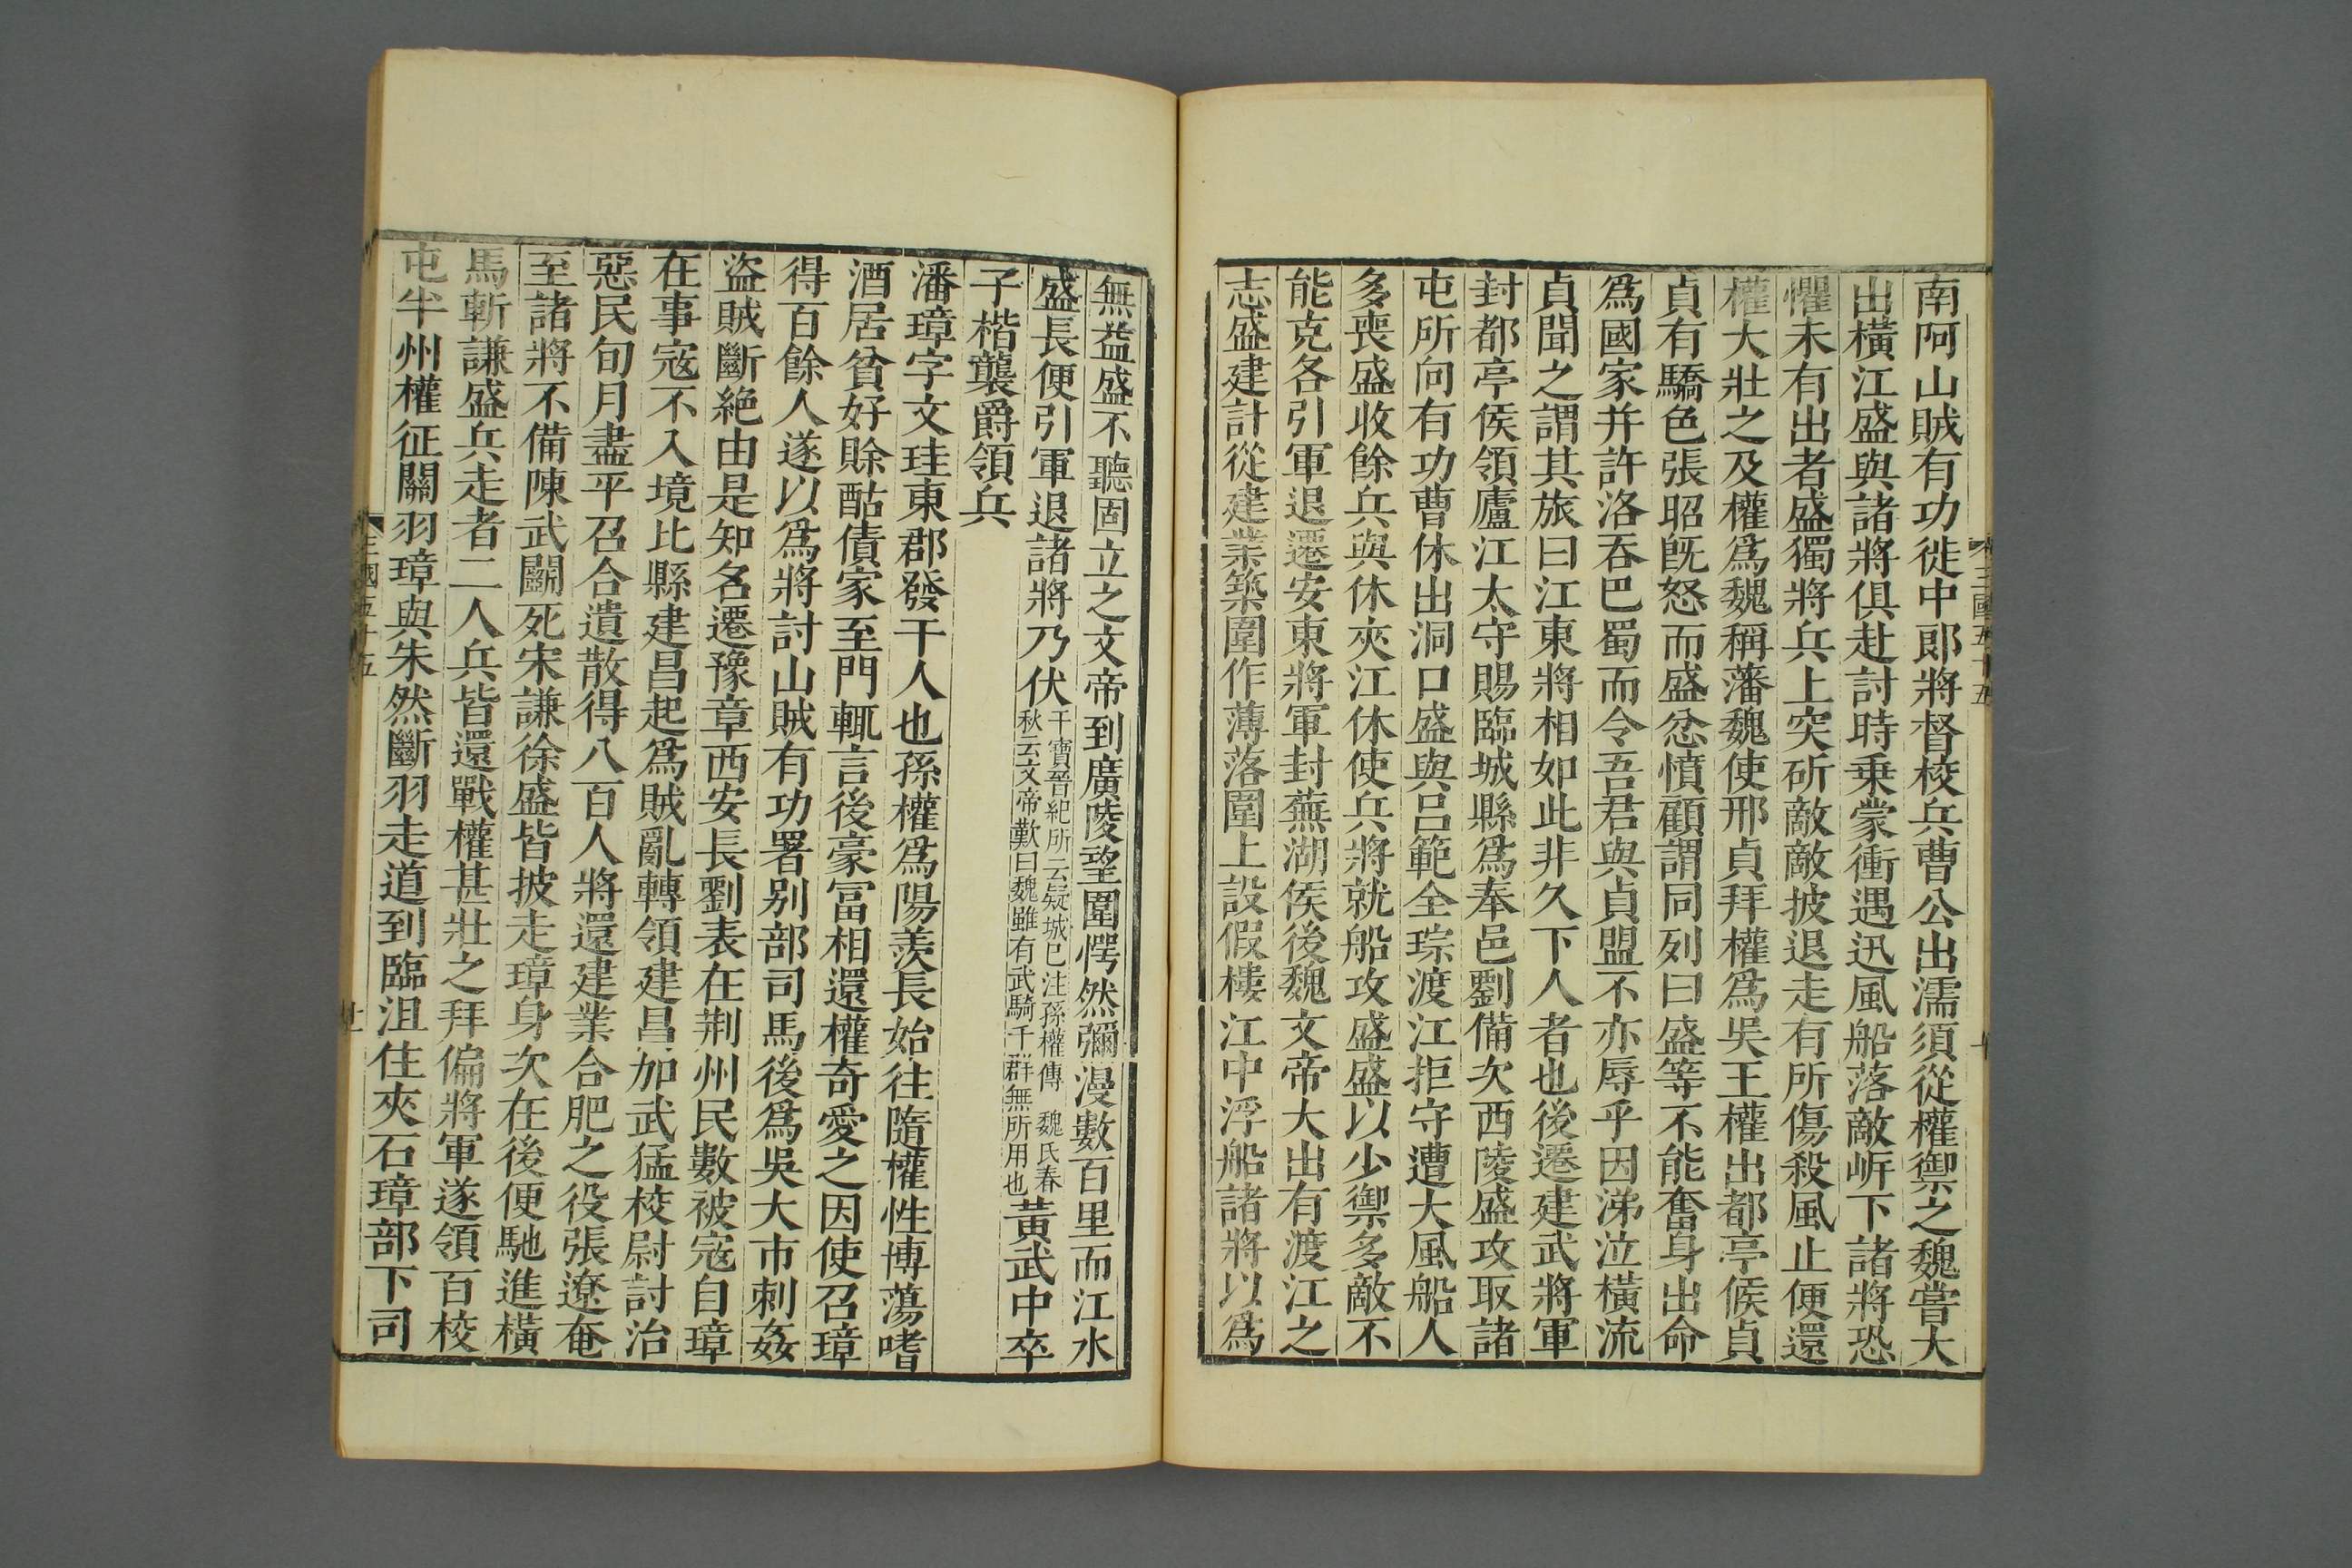 南阿山賊有功徙中郎將督校兵曹公出濡須從權禦之魏嘗大
出橫江盛與諸將俱赴討時乗蒙衝遇迅風船落敵岓下諸將恐
懼未有出者盛獨將兵上突斫敵敵披退走有所傷殺風止便還
權大壯之及權爲魏稱藩魏使邢貞拜權爲吳王權出都亭候貞
貞有驕色張昭旣怒而盛忿憤顧謂同列曰盛等不能奮身出命
爲國家并許洛吞巴蜀而令吾君與貞盟不亦辱乎因涕泣橫流
貞聞之謂其旅曰江東將相如此非久下人者也後遷建武將軍
封都亭侯領廬江太守賜臨城縣爲奉邑劉備次西陵盛攻取諸
屯所向有功曹休出洞口盛與呂範全琮渡江拒守遭大風船人
多喪盛收餘兵與休夾江休使兵將就船攻盛盛以少禦多敵不
能克各引軍退遷安東將軍封蕪湖侯後魏文帝大出有渡江之
志盛建計從建業築圍作薄落圍上設假樓江中浮船諸將以爲
無益盛不聽固立之文帝到廣陵望圍愕然彌漫數百里而江水
盛長便引軍退諸將乃伏干寶晉紀所云疑城巳注孫權傳 魏氏春秋云文帝歎曰魏雖有武騎千群無所用也黃武中卒
子楷襲爵領兵
潘璋字文珪東郡發干人也孫權爲陽羨長始往隨權性博蕩嗜
酒居貧好賒酤債家至門輒言後豪冨相還權奇愛之因使召璋
得百餘人遂以爲將討山賊有功署别部司馬後爲吳大市刺姦
盜賊斷絶由是知名遷豫章西安長劉表在荆州民數被寇自璋
在事寇不入境比縣建昌起爲賊亂轉領建昌加武猛校尉討治
惡民旬月盡平召合遺散得八百人將還建業合肥之役張遼奄
至諸將不備陳武鬭死宋謙徐盛皆披走璋身次在後便馳進橫
馬斬謙盛兵走者二人兵皆還戰權甚壯之拜偏將軍遂領百校
屯半州權征關羽璋與朱然斷羽走道到臨沮住夾石璋部下司
三國五十五